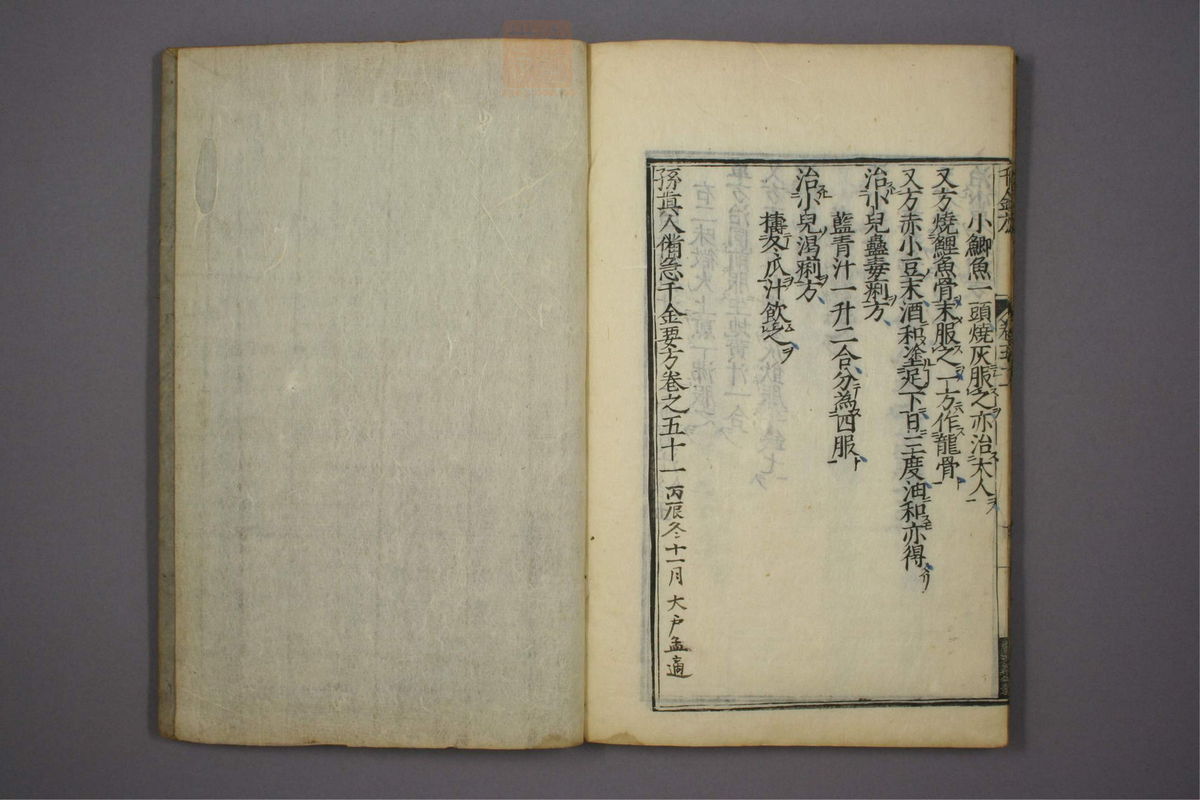 千金方 卷五十一
小鯽魚一頭燒灰服之亦治大人
又方燒鯉魚骨末服之一方作龍骨
又方赤小豆末酒和塗足下日三度油和亦得
治小兒蠱毒痢方
藍青汁一升二合分為四服
治小兒渴痢方
擣冬瓜汁飲之
孫真人備急千金要方卷之五十一 丙辰冬十一月 大戶孟適